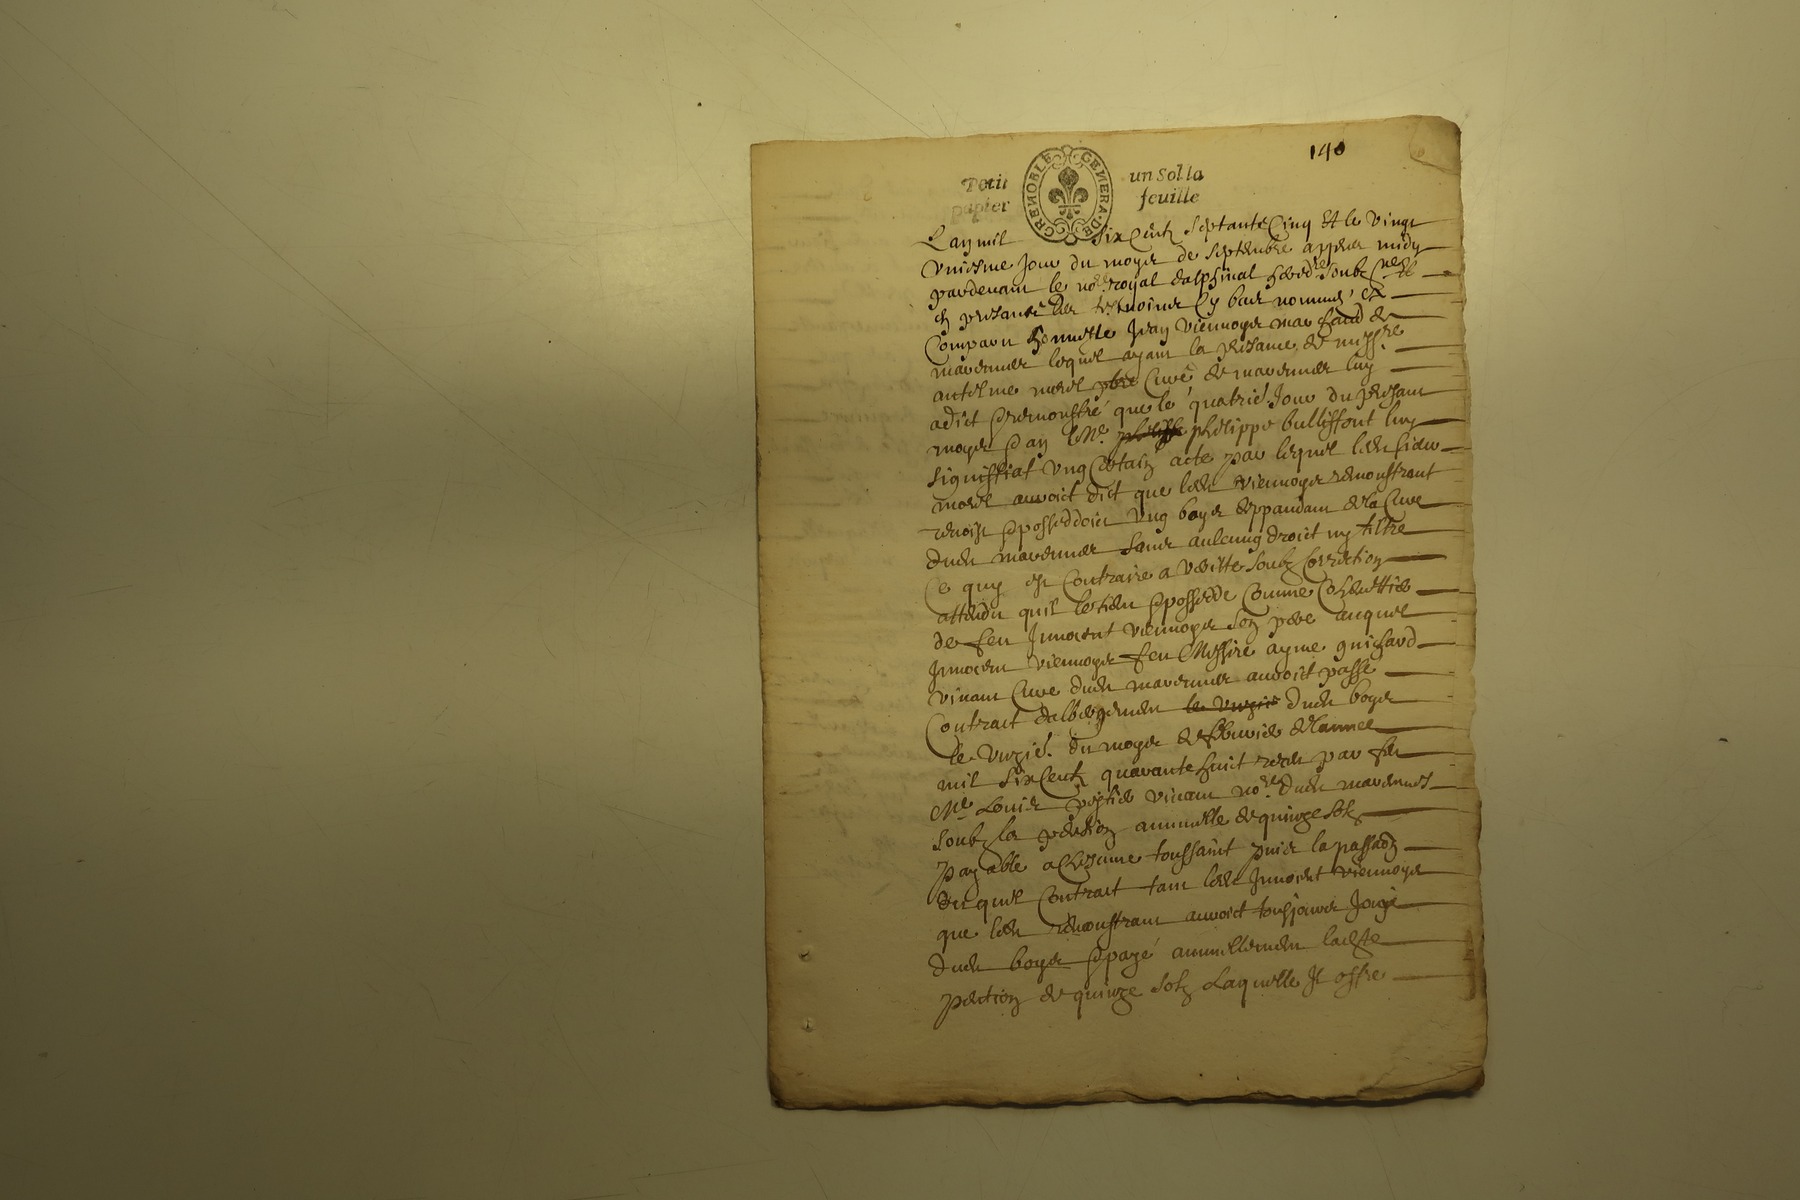 140
Petit papier
GRENOBLE GENERA. DE
un sol la feuille
L'an mil six Centz septante Cinq et le vingt
uniesme Jour du moys de septembre apprés midy
pardevant le no.re royal dalphinal heredre. soubz.né et
en presance des tesmoins Cy bas nommés, est
Comparu honneste Jean viennoys marchand de
mavennes lequel ayant la presance de messre.
antelme morel p̶b̶r̶e̶ Curé de mavennes luy
a dict & remonstré que le quatries. Jour du presant
moys & an Me. philippe bullissont luy
signiffiat ung Certain acte par lequel ledit sieur
morel auroict dict que ledit viennoys remonstrant
& posseddoict ung boys deppandant de la Cure
dudit mavennes sans aulcung droict ny tiltre
Ce quy est Contraire a veritte soubz Correction
attendu quil le tient & possedde Comme Coherettier
de feu Innocent viennoys son pere auquel
Innocent viennoys feu Messire ayme guichard
vivant Cure dudit mavennes auroict passé
Contract dalbergement dudit boys
le unzies. du moys de febvrier de lannee
mil six Centz quarante huict receu par feu
Me Louis vivant no.re dudit mavennes
soubz la pention annuelle de quinze solz
payable a Chescune toussaint puis la passaon
duquel Contract tant ledit Innocent viennoys
que ledit remonstrant auroict tousjours Jouy
dudit boys & payé annuellement ladite
pention de quinze solz Laquelle Il offre